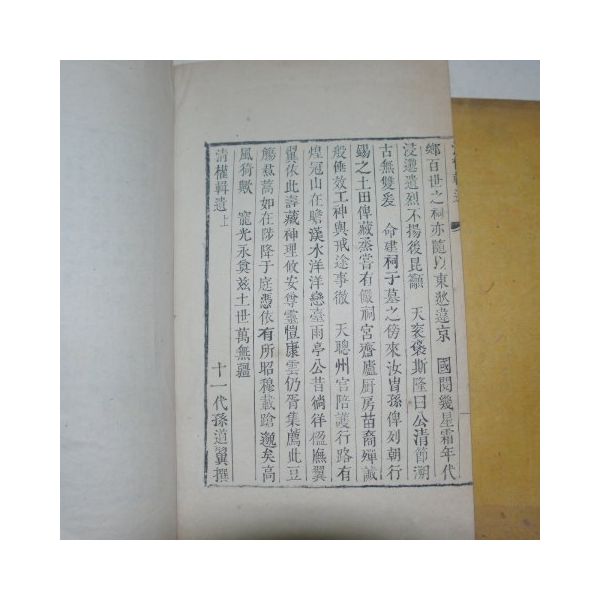 鄕百世之祠亦隨以東愁違京 國閱幾星霜年代
浸邈遺烈不揚後昆籲 天袞褒斯隆曰公淸節溯
古無雙爰 命建祠于墓之傍來汝胄孫俾列朝行
錫之土田俾藏蒸嘗有儼祠宮齋廬厨房苗裔殫誠
般倕效工神輿戒途事徹 天聰州官陪護行路有
煌冠山在瞻漢水洋洋戀臺雨亭公昔徜徉楹廡翼
翼依此壽藏神理攸安尊靈愷康雲仍胥集薦此豆
觴焄蒿如在陟降于庭憑依有所昭穆載蹌邈矣高
風猗歟 寵光永奠玆土世萬無疆
十一代孫道翼撰
淸權輯遺上